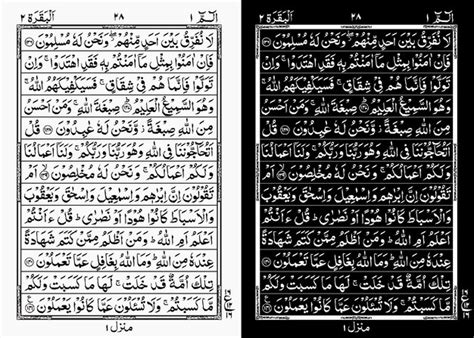 الٓمّٓ ١ ٢٨ اَلْبَقَرَة ٢
لَا نُفَرِّقُ بَيْنَ اَحَدٍ مِّنْهُمْ وَنَحْنُ لَهٗ مُسْلِمُوْنَ
فَاِنْ اٰمَنُوْا بِمِثْلِ مَآ اٰمَنْتُمْ بِهٖ فَقَدِ اهْتَدَوْا وَاِنْ
تَوَلَّوْا فَاِنَّمَا هُمْ فِيْ شِقَاقٍ فَسَيَكْفِيْكَهُمُ اللّٰهُ
وَهُوَ السَّمِيْعُ الْعَلِيْمُ صِبْغَةَ اللّٰهِ وَمَنْ اَحْسَنُ
مِنَ اللّٰهِ صِبْغَةً وَّنَحْنُ لَهٗ عٰبِدُوْنَ قُلْ
اَتُحَآجُّوْنَنَا فِي اللّٰهِ وَهُوَ رَبُّنَا وَرَبُّكُمْ وَلَنَآ اَعْمَالُنَا
وَلَكُمْ اَعْمَالُكُمْ وَنَحْنُ لَهٗ مُخْلِصُوْنَ اَمْ
تَقُوْلُوْنَ اِنَّ اِبْرٰهٖمَ وَاِسْمٰعِيْلَ وَاِسْحٰقَ وَيَعْقُوْبَ
وَالْاَسْبَاطَ كَانُوْا هُوْدًا اَوْ نَصٰرٰى قُلْ ءَاَنْتُمْ
اَعْلَمُ اَمِ اللّٰهُ وَمَنْ اَظْلَمُ مِمَّنْ كَتَمَ شَهَادَةً
عِنْدَهٗ مِنَ اللّٰهِ وَمَا اللّٰهُ بِغَافِلٍ عَمَّا تَعْمَلُوْنَ
تِلْكَ اُمَّةٌ قَدْ خَلَتْ لَهَا مَا كَسَبَتْ وَلَكُمْ
مَّا كَسَبْتُمْ وَلَا تُسْـَٔلُوْنَ عَمَّا كَانُوْا يَعْمَلُوْنَ
منزل ١
الٓمّٓ ١ ٢٨ اَلْبَقَرَة ٢
لَا نُفَرِّقُ بَيْنَ اَحَدٍ مِّنْهُمْ وَنَحْنُ لَهٗ مُسْلِمُوْنَ
فَاِنْ اٰمَنُوْا بِمِثْلِ مَآ اٰمَنْتُمْ بِهٖ فَقَدِ اهْتَدَوْا وَاِنْ
تَوَلَّوْا فَاِنَّمَا هُمْ فِيْ شِقَاقٍ فَسَيَكْفِيْكَهُمُ اللّٰهُ
وَهُوَ السَّمِيْعُ الْعَلِيْمُ صِبْغَةَ اللّٰهِ وَمَنْ اَحْسَنُ
مِنَ اللّٰهِ صِبْغَةً وَّنَحْنُ لَهٗ عٰبِدُوْنَ قُلْ
اَتُحَآجُّوْنَنَا فِي اللّٰهِ وَهُوَ رَبُّنَا وَرَبُّكُمْ وَلَنَآ اَعْمَالُنَا
وَلَكُمْ اَعْمَالُكُمْ وَنَحْنُ لَهٗ مُخْلِصُوْنَ اَمْ
تَقُوْلُوْنَ اِنَّ اِبْرٰهٖمَ وَاِسْمٰعِيْلَ وَاِسْحٰقَ وَيَعْقُوْبَ
وَالْاَسْبَاطَ كَانُوْا هُوْدًا اَوْ نَصٰرٰى قُلْ ءَاَنْتُمْ
اَعْلَمُ اَمِ اللّٰهُ وَمَنْ اَظْلَمُ مِمَّنْ كَتَمَ شَهَادَةً
عِنْدَهٗ مِنَ اللّٰهِ وَمَا اللّٰهُ بِغَافِلٍ عَمَّا تَعْمَلُوْنَ
تِلْكَ اُمَّةٌ قَدْ خَلَتْ لَهَا مَا كَسَبَتْ وَلَكُمْ
مَّا كَسَبْتُمْ وَلَا تُسْـَٔلُوْنَ عَمَّا كَانُوْا يَعْمَلُوْنَ
منزل ١